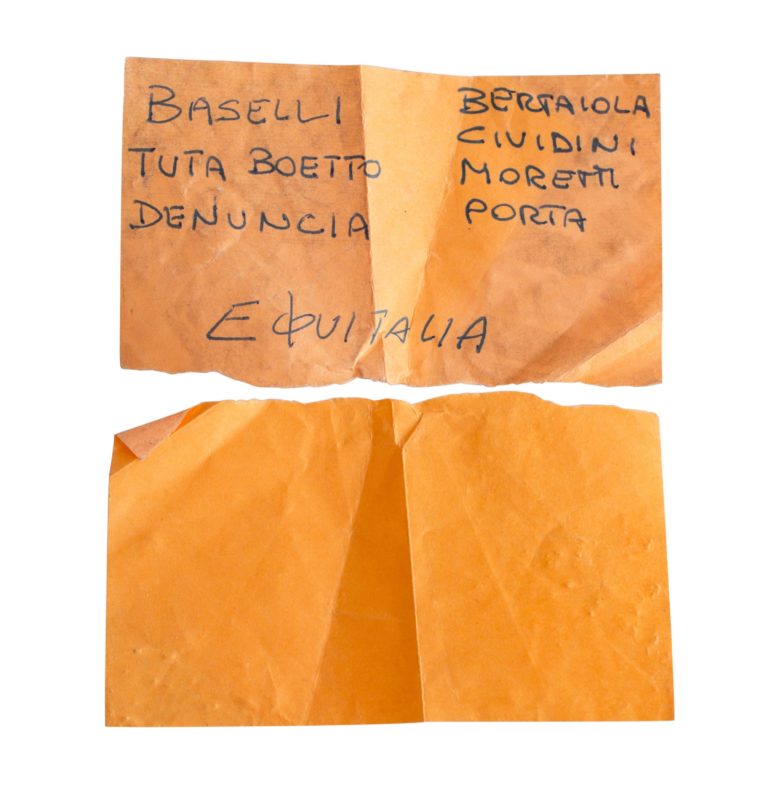 BASELLI
TUTA BOETTO
DENUNCIA
BERTAIOLA
CIVIDINI
MORETTI
PORTA
EQUITALIA